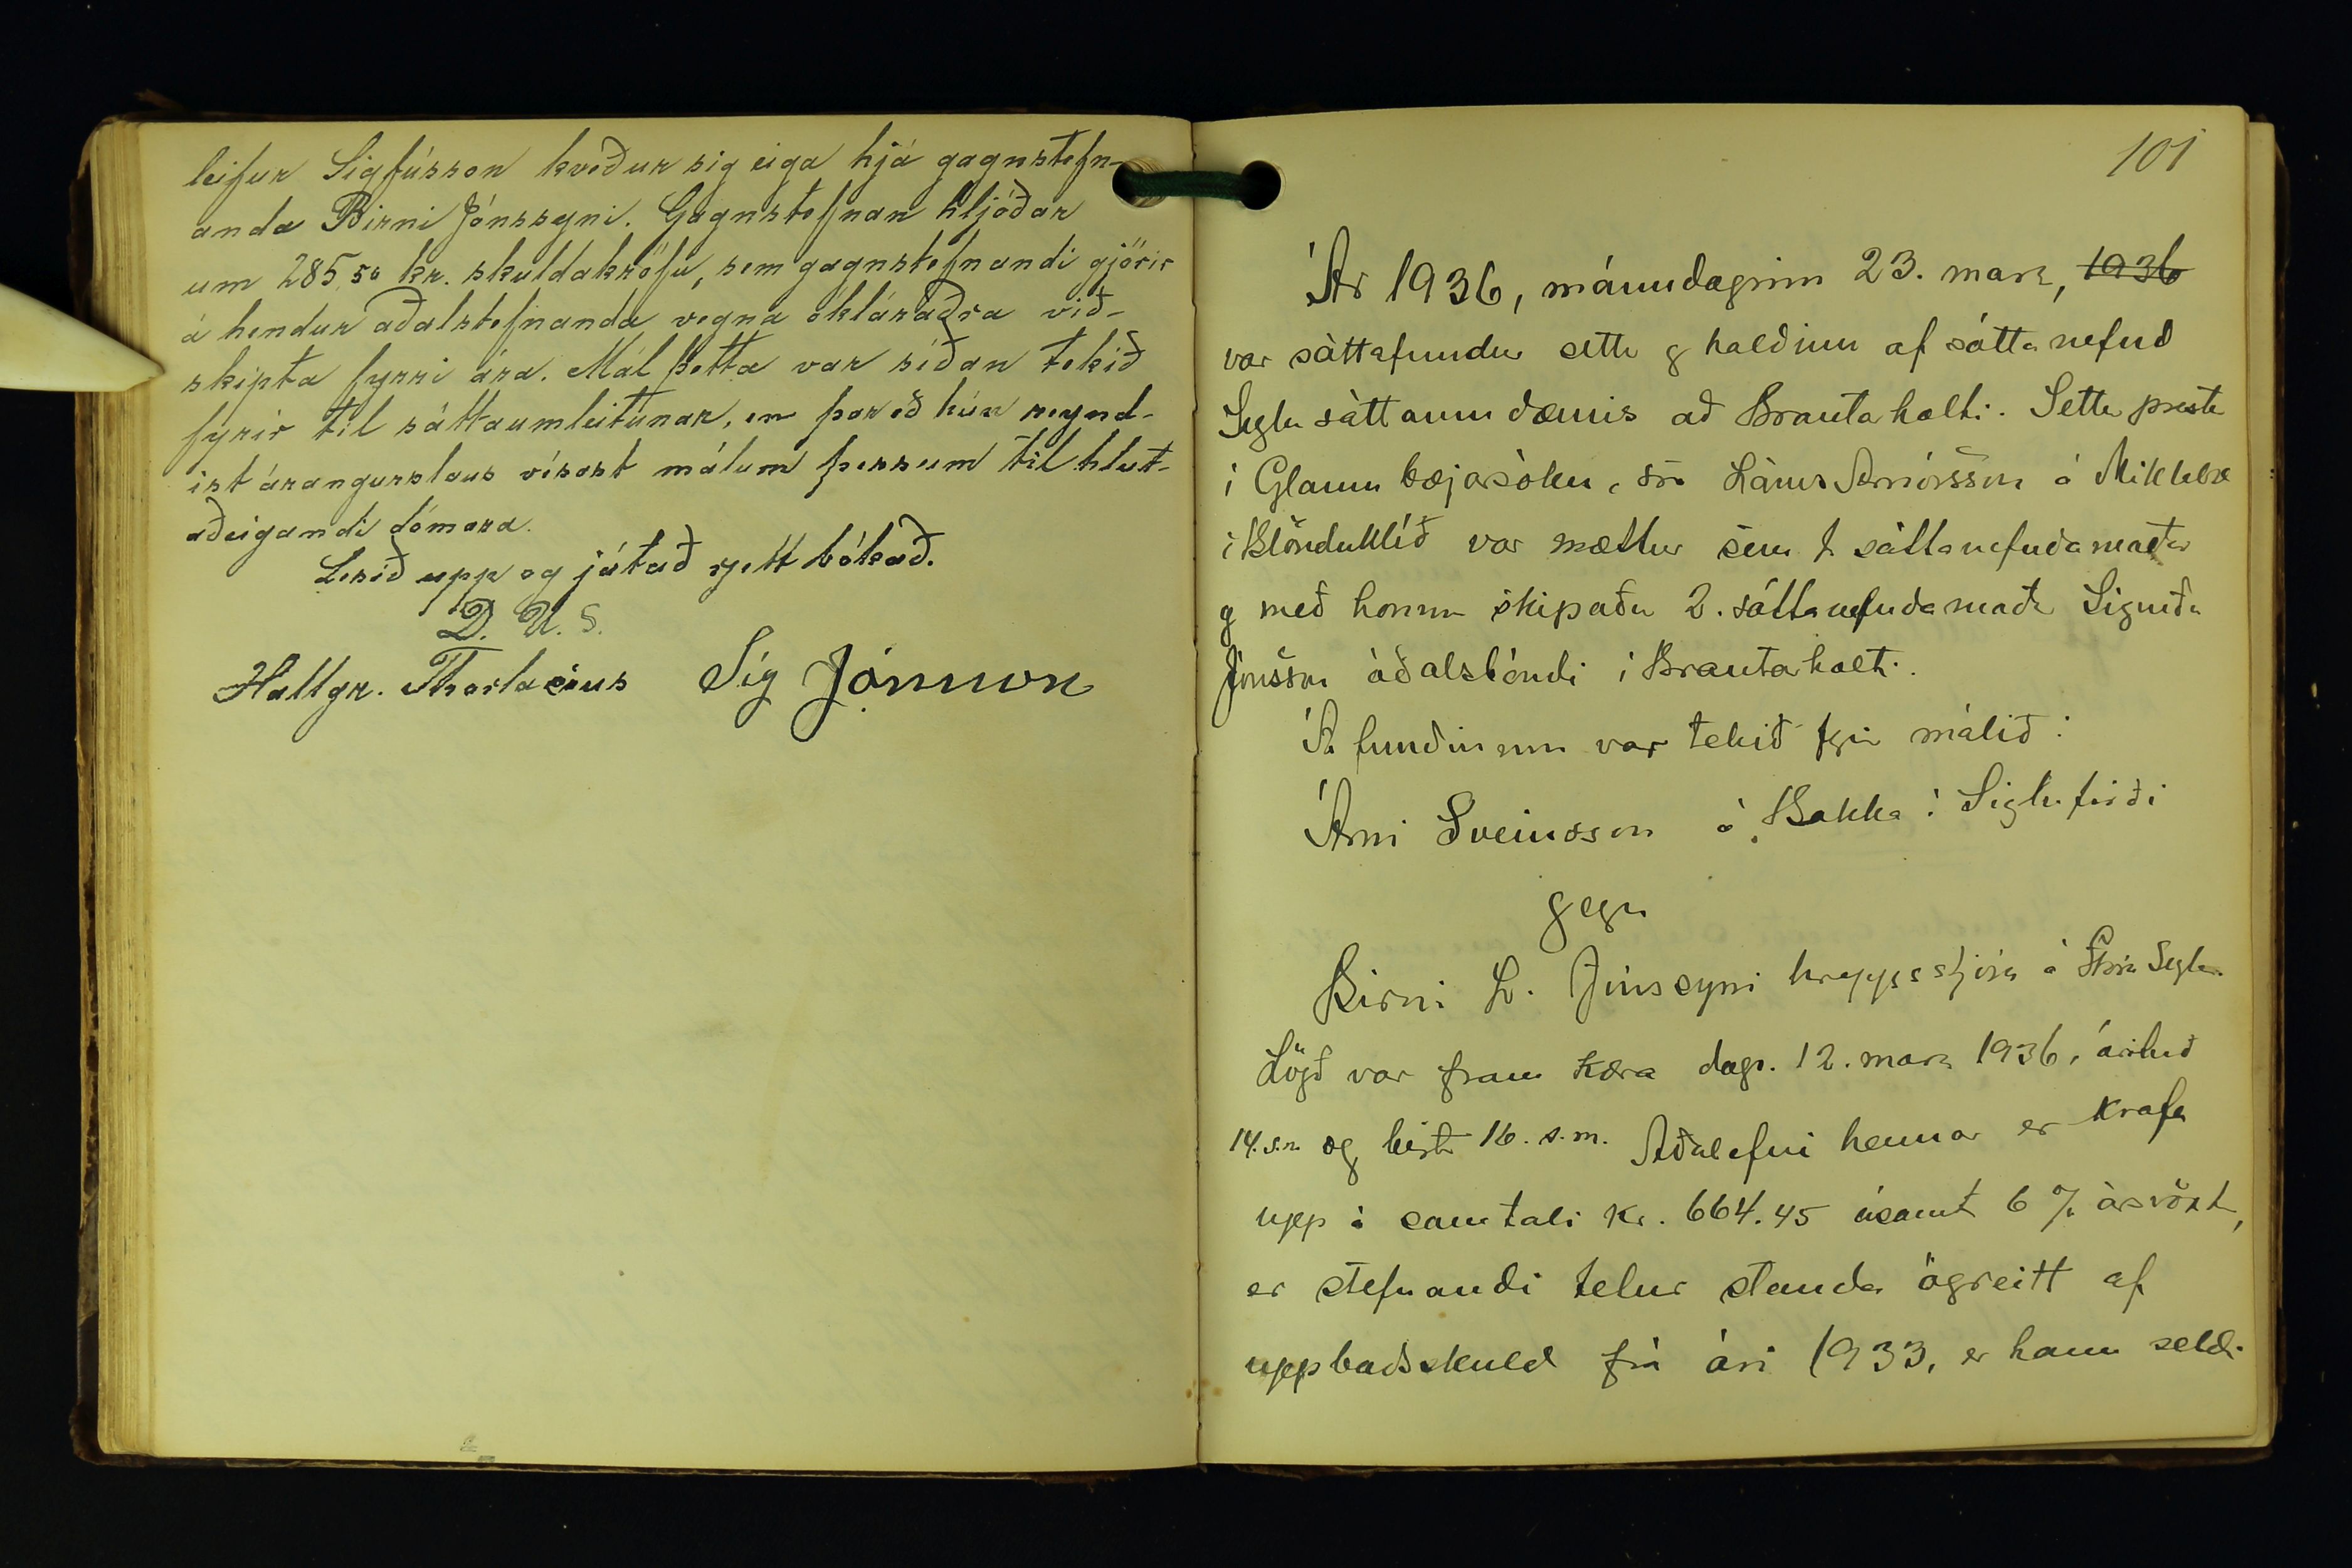 leifur Sigfússon kveður sig eiga hjá gagnstefn-
anda Birni Jónssyni. Gagnstefnan hljóðar
um 285,50 kr. skuldakröfu, sem gagnstefnandi gjörir
á hendur aðalstefnanda vegna ókláraðra við-
skipta fyrri ára. Mál þetta var síðan tekið
fyrir til sáttaumleitunar, en þar eð hún reynd-
ist árangurslaus vísast málum þessum til hlut-
aðeigandi dómara.
Lesið upp og játað rjett bókað.
D. U. S.
Hallgr. Thorlacius Sig Jónsson
101
Ár 1936, mánudaginn 23. mars, 1936
var sáttafundur settur og haldinn af sáttanefnd
Seylu sáttaumdæmis að Brautarholti. Settur prestur
í Glaumbæjarsókn, sra Lárus Arnórsson á Miklabæ
í Blönduhlíð var mættur sem 1. sáttanefndamaður
og með honum skipaður 2. sáttanefndamaður Sigurður
Jónsson óðalsbóndi í Brautarholti.
Á fundinum var tekið fyrir málið:
Árni Sveinsson á Bakka í Siglufirði
gegn
Birni L. Jónssyni hreppsstjóra á Stóru Seylu.
Lögð var fram kæra dags. 12. mars 1936, árituð
14. s.m. og birt 16. s.m. Aðalefni hennar er krafa
upp á samtals kr. 664.45 ásamt 6% ársvöxt,
er stefnandi telur standa ógreitt af
uppboðsskuld frá ári 1933, er hann seldi